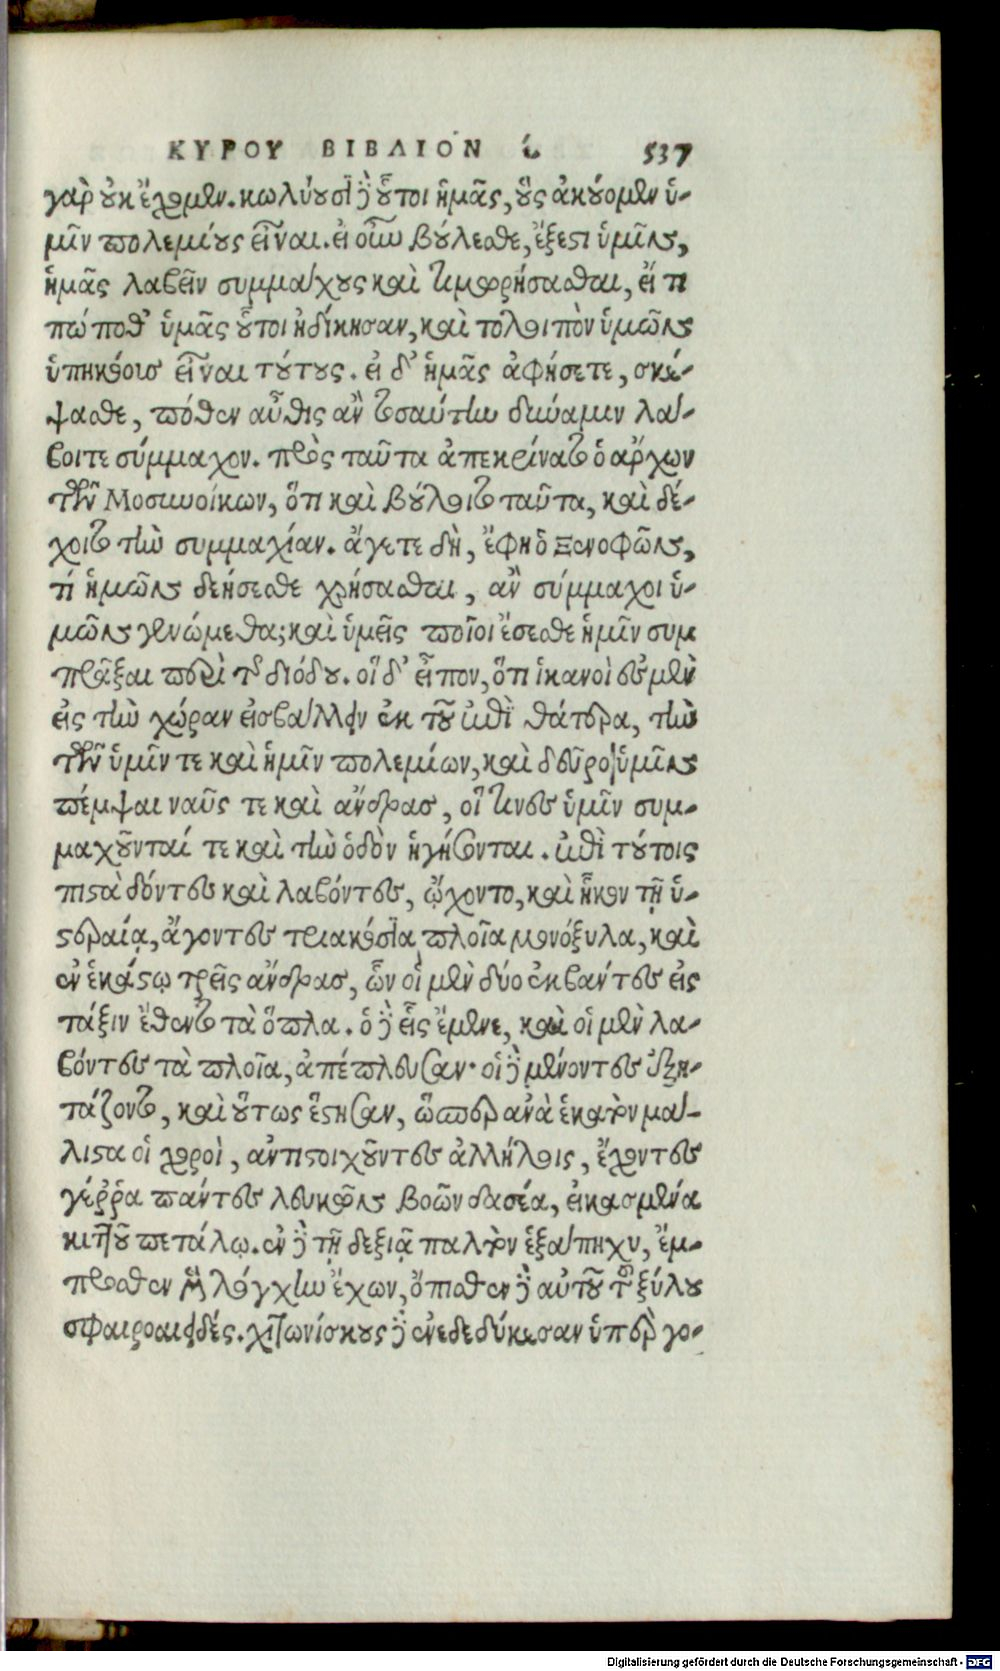 ΚΥΡΟΥ ΒΙΒΛΙΟΝ 537
γὰρ οὐκ ἔχομεν. κωλύουσι δὲ οὗτοι ἡμᾶς, οὓς ἀκούομεν ὑ-
μῖν πολεμίους εἶναι. εἰ οὖν βούλεσθε, ἔξεστι ὑμῖν,
ἡμᾶς λαβεῖν συμμάχους καὶ τιμωρήσασθαι, εἴ τι
πώποθ' ὑμᾶς οὗτοι ἠδίκησαν, καὶ τὸ λοιπὸν ὑμῶν
ὑπηκόοις εἶναι τούτους. εἰ δ' ἡμᾶς ἀφήσετε, σκέ-
ψασθε, πόθεν αὖθις ἂν τοσαύτην δύναμιν λά-
βοιτε σύμμαχον. πρὸς ταῦτα ἀπεκρίνατο ὁ ἄρχων
τῶν Μοσυνοίκων, ὅτι καὶ βούλοιτο ταῦτα, καὶ δέ-
χοιτο τὴν συμμαχίαν. ἄγετε δὴ, ἔφη ὁ Ξενοφῶν,
τί ἡμῶν δεήσεσθε χρήσασθαι, ἂν σύμμαχοι ὑ-
μῶν γενώμεθα; καὶ ὑμεῖς ποῖοι ἔσεσθε ἡμῖν συμ
πρᾶξαι περὶ τῆς διόδου. οἱ δ' εἶπον, ὅτι ἱκανοὶ ἐσμὲν
εἰς τὴν χώραν εἰσβάλλειν ἐκ τοῦ ἐπὶ θάτερα, τὴν
τῶν ὑμῖν τε καὶ ἡμῖν πολεμίων, καὶ δεῦρο ὑμῖν
πέμψαι ναῦς τε καὶ ἄνδρας, οἵ τινες ὑμῖν συμ-
μαχοῦνταί τε καὶ τὴν ὁδὸν ἡγήσονται. ἐπὶ τούτοις
πιστὰ δόντες καὶ λαβόντες, ᾤχοντο, καὶ ἧκον τῇ ὑ-
στεραίᾳ, ἄγοντες τριακόσια πλοῖα μονόξυλα, καὶ
ἐν ἑκάστῳ τρεῖς ἄνδρας, ὧν οἱ μὲν δύο ἐκβάντες εἰς
τάξιν ἔθεντο τὰ ὅπλα. ὁ δὲ εἷς ἔμενε, καὶ οἱ μὲν λα-
βόντες τὰ πλοῖα, ἀπέπλευσαν· οἱ δὲ μένοντες ἐξη-
τάζοντο, καὶ οὕτως ἔστησαν, ὥσπερ ἀνὰ ἑκατὸν μά-
λιστα οἱ χοροὶ, ἀντιστοιχοῦντες ἀλλήλοις, ἔχοντες
γέῤῥα πάντες λευκῶν βοῶν δασέα, εἰκασμένα
κιττοῦ πετάλῳ. ἐν δὲ τῇ δεξιᾷ παλτὸν ἑξάπηχυ, ἔμ-
προσθεν μὲν λόγχην ἔχων, ὄπισθεν δὲ αὐτοῦ τοῦ ξύλου
σφαιροειδές. χιτωνίσκους δὲ ἐνεδεδύκεσαν ὑπὲρ γο-
Digitalisierung gefördert durch die Deutsche Forschungsgemeinschaft - DFG